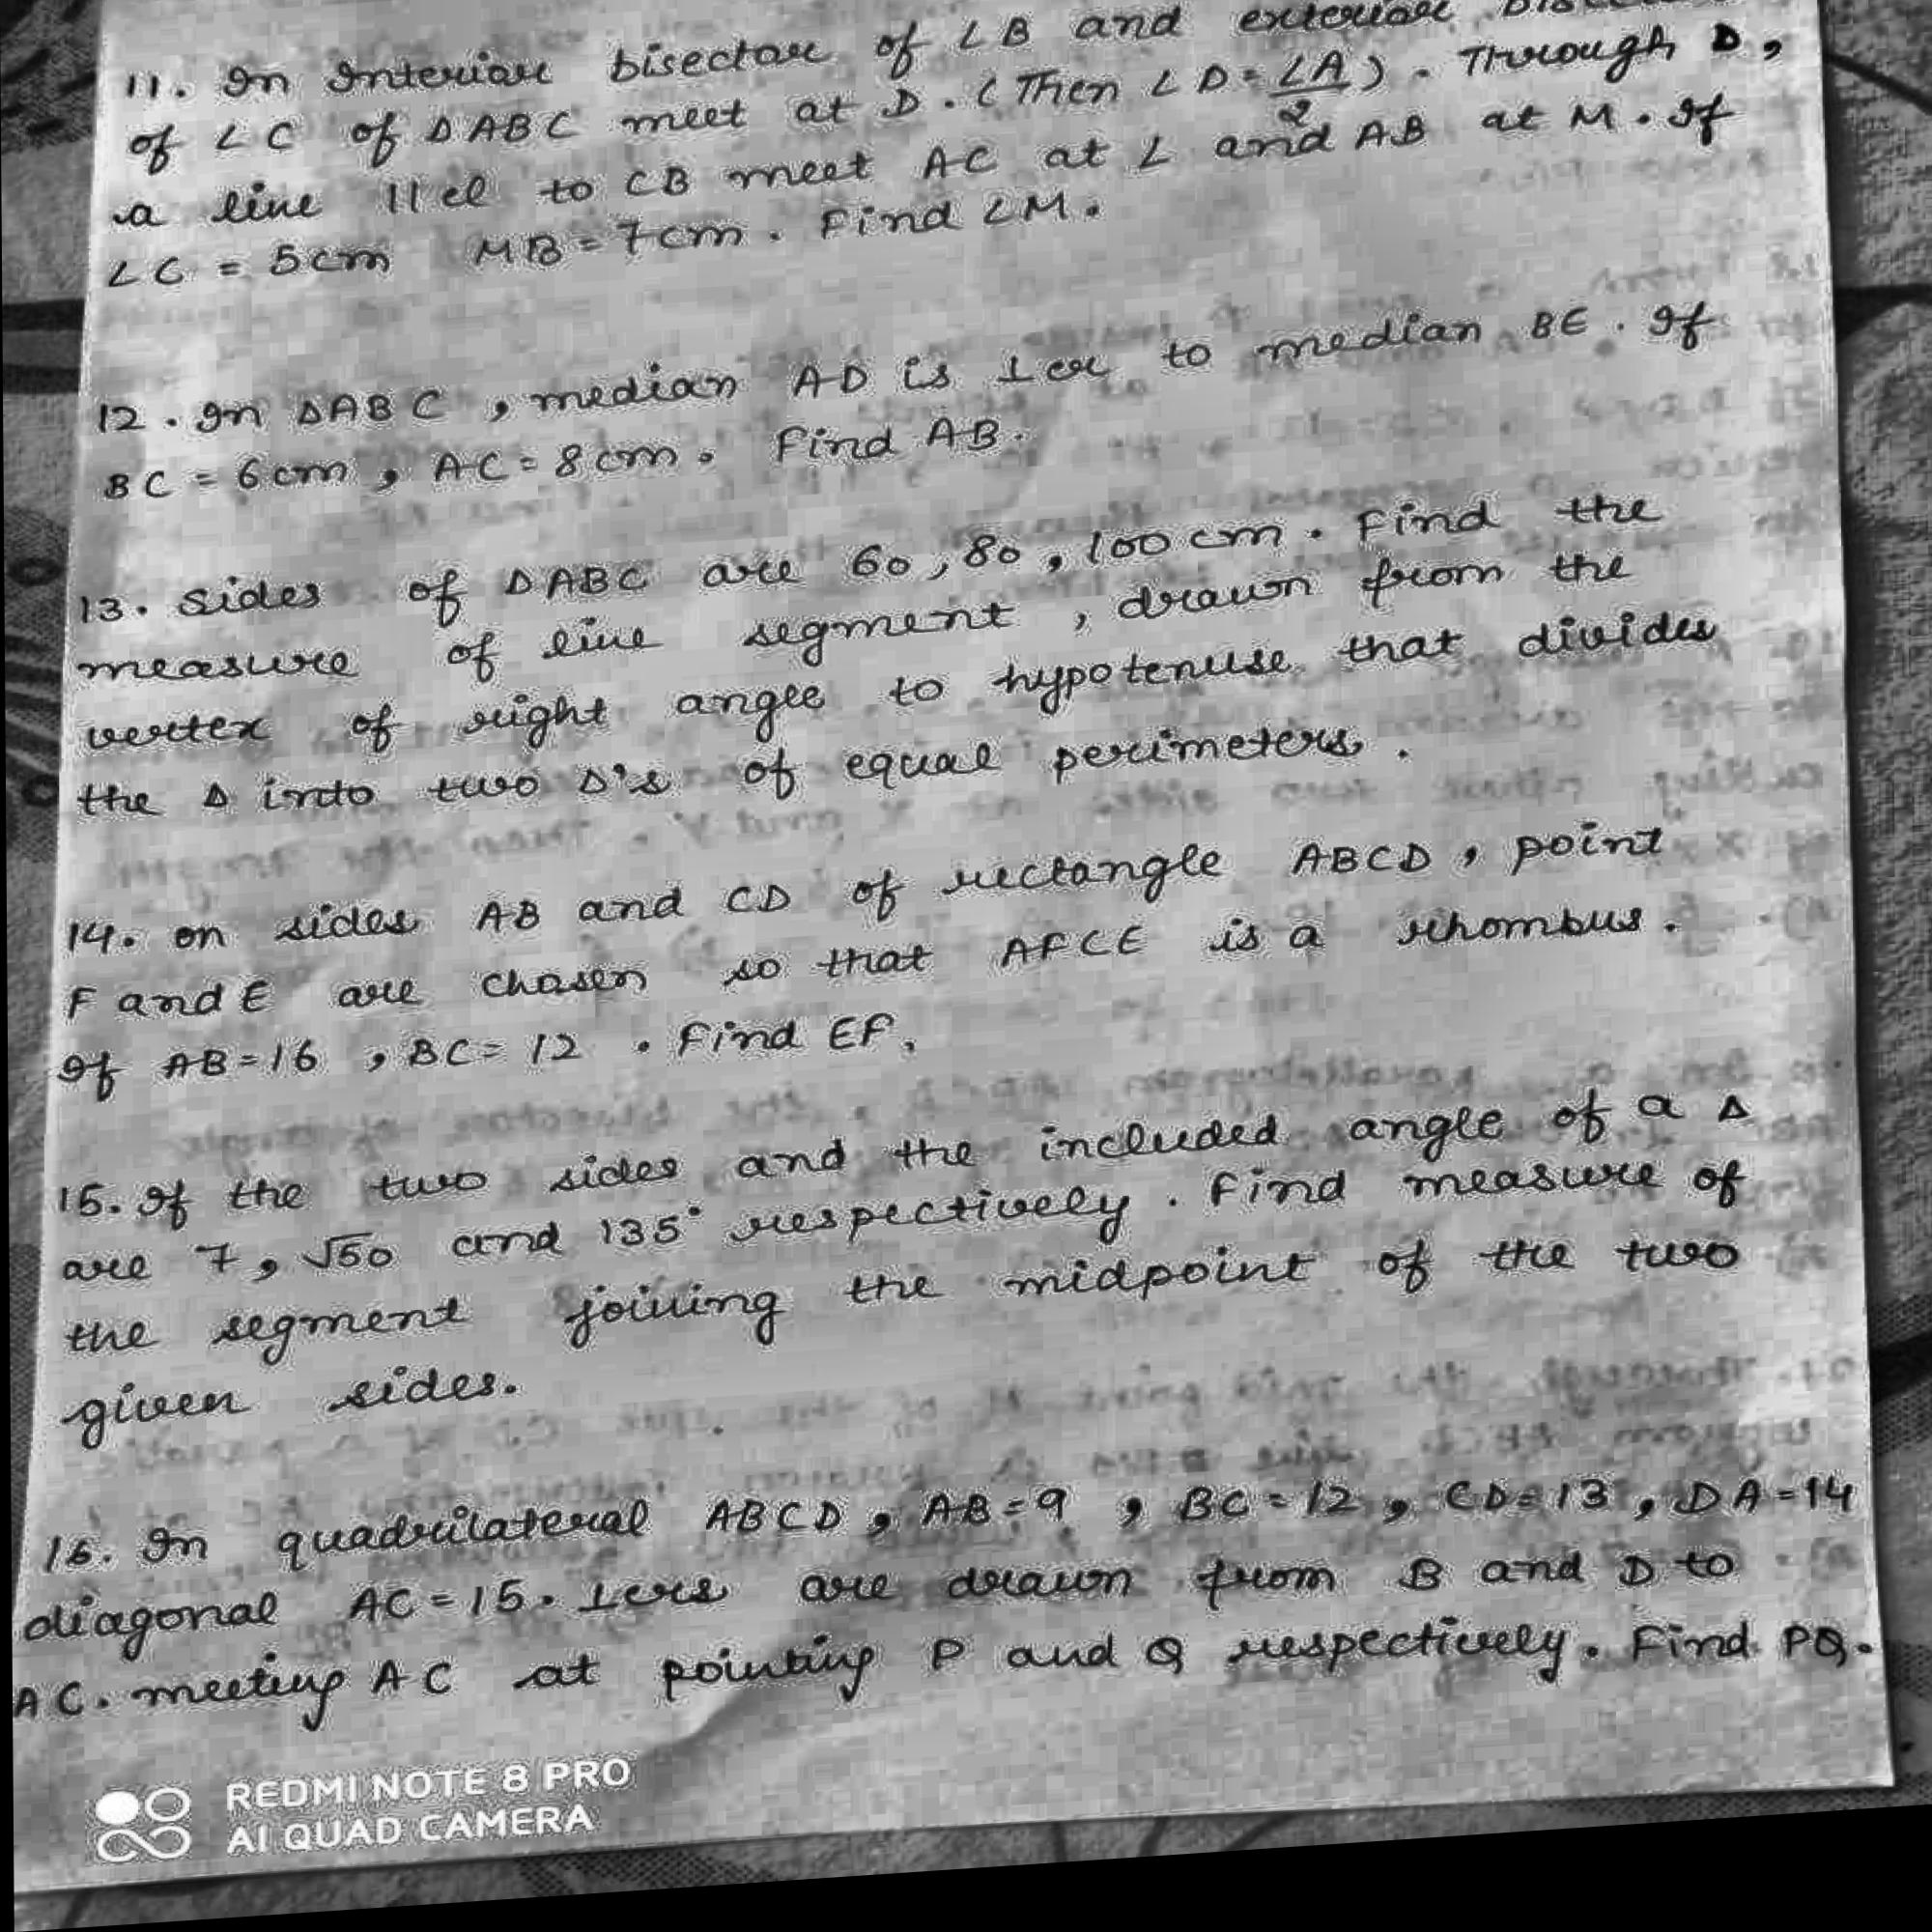 11. In Interior bisector of ∠B and exterior
of ∠C of ΔABC meet at D. (Then ∠D = ∠A/2). Through D,
a line ||el to CB meet AC at L and AB at M. If
LC = 5cm MB = 7cm. Find LM.
12. In ΔABC, median AD is ⊥er to median BE. If
BC = 6cm, AC = 8cm. Find AB.
13. Sides of ΔABC are 60, 80, 100 cm. Find the
measure of line segment, drawn from the
vertex of right angle to hypotenuse that divides
the Δ into two Δ's of equal perimeters.
14. on sides AB and CD of rectangle ABCD, point
F and E are chosen so that AFCE is a rhombus.
If AB=16, BC=12. Find EF.
15. If the two sides and the included angle of a Δ
are 7, √50 and 135° respectively. Find measure of
the segment joining the midpoint of the two
given sides.
16. In quadrilateral ABCD, AB=9, BC=12, CD=13, DA=14
diagonal AC=15. ⊥ers are drawn from B and D to
AC. meeting AC at pointing P and Q respectively. Find PQ.
REDMI NOTE 8 PRO
AI QUAD CAMERA